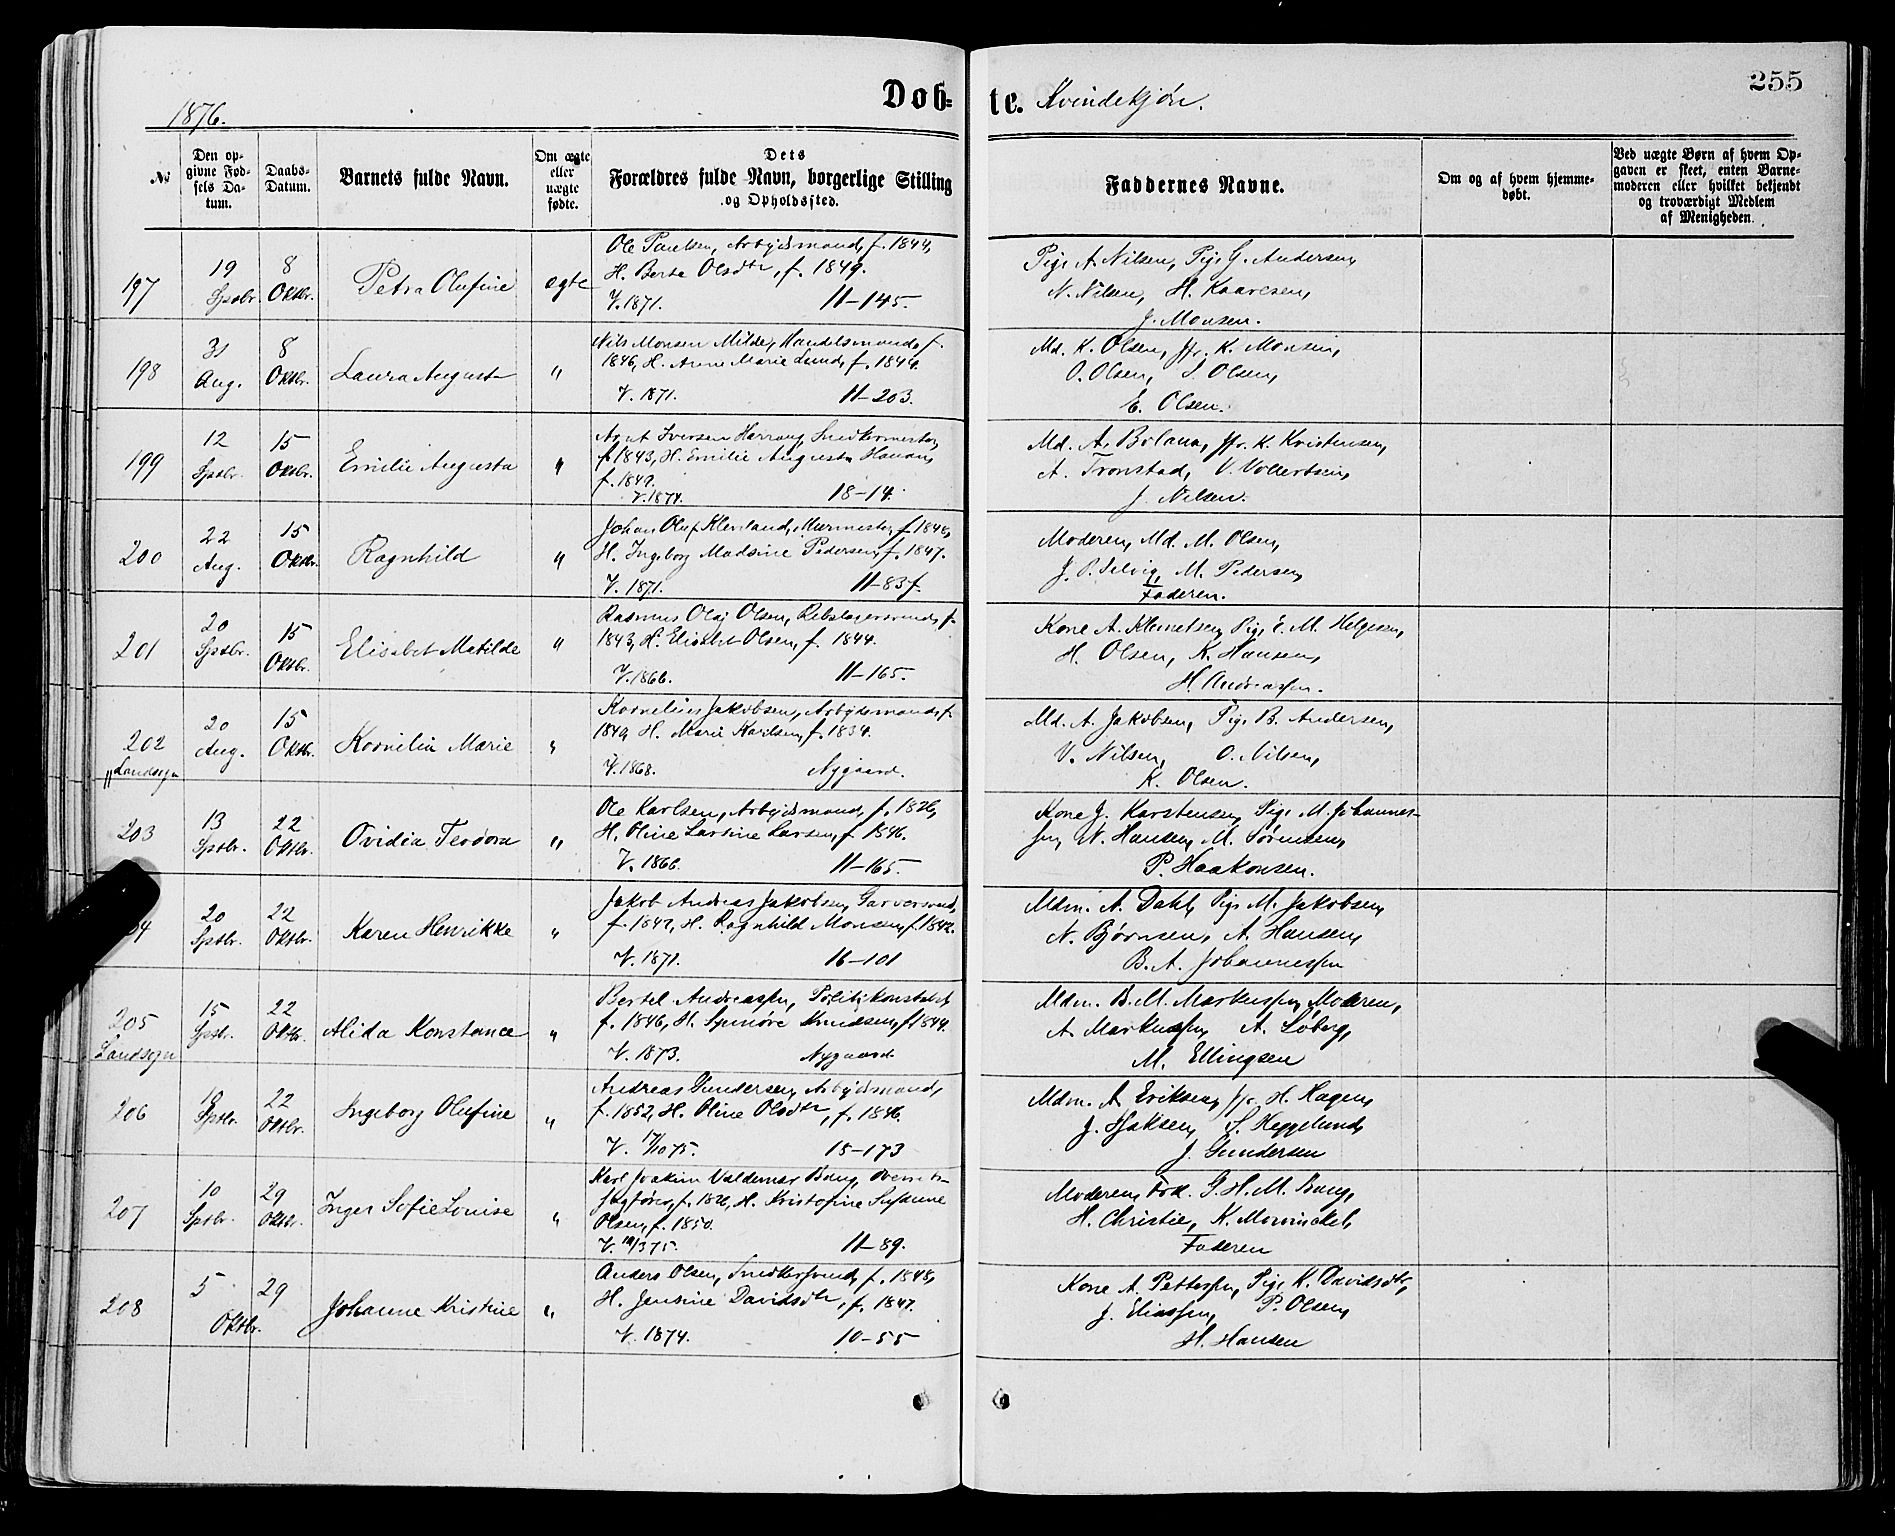 255
1876.
Døb-
te. Kvindekjøn.
№
Den op-
givne Fød-
sels Da-
tum.
Daabs-
Datum.
Barnets fulde Navn.
Om ægte
eller
uægte
fødte.
Dets
Forældres fulde Navn, borgerlige Stilling
og Opholdssted.
Faddernes Navne.
Om og af hvem hjemme-
døbt.
Ved uægte Børn af hvem Op-
gaven er skeet, enten Barne-
moderen eller hvilket bekjendt
og troværdigt Medlem
af Menigheden.
197
19
Sptbr.
8
Oktbr.
Petra Olufine
egte
Ole Paulsen, Arbejdsmand, f. 1844,
H. Berta Olsdtr, f. 1849.
V. 1871. 11-145.
Pige A. Nilsen, Pige G. Andersen,
N. Nilsen, H. Kaaresen,
J. Monsen.
198
31
Aug.
8
Oktbr.
Laura Augusta
"
Nils Monsen Milde, Handelsmand, f.
1846, H. Anne Marie Lund, f. 1844.
V. 1871. 11-203.
Md. K. Olsen, Jfr. K. Monsen,
O. Olsen, I. Olsen,
E. Olsen.
199
12
Sptbr.
15
Oktbr.
Emilie Augusta
"
Iversen Snedkermester,
f. 1843, H. Emilie Augusta
f. 1849.
V. 1874. 18-14.
Md. A. Jfr. K. Kristensen,
A. Tronstad, V. Vollertsen,
J. Nilsen.
200
22
Aug.
15
Oktbr.
Ragnhild
"
Johan Oluf Murmester, f. 1848,
H. Ingeborg Madsine Pedersen, f. 1847.
V. 1871. 11-83f.
Moderen, Md. M. Olsen,
J. P. Selvig, M. Pedersen,
Faderen.
201
20
Sptbr.
15
Oktbr.
Elisabet Matilde
"
Rasmus Olaj Olsen, Rebslagersvend, f.
1843, H. Elisabet Olsen, f. 1844.
V. 1866. 11-165.
Kone A. Klemetsen, Pige E. M. Helgesen,
H. Olsen, K. Hansen,
H. Andreassen.
202
Landsogn
20
Aug.
15
Oktbr.
Kornelia Marie
"
Kornelius Jakobsen, Arbejdsmand, f.
1849, H. Marie Karlsen, f. 1834.
V. 1868. Nygaard.
Md. A. Jakobsen, Pige B. Andersen,
V. Nilsen, O. Nilsen,
K. Olsen.
203
13
Sptbr.
22
Oktbr.
Ovidia Teodora
"
Ole Karlsen, Arbejdsmand, f. 1826,
H. Oline Larsine Larsen, f. 1846.
V. 1866. 11-165.
Kone J. Karstensen, Pige M. Johannes-
sen, N. Hansen, M. Sørensen,
P. Haakonsen.
4
20
Sptbr.
22
Oktbr.
Karen Henrikke
"
Jakob Andreas Jakobsen, Garversvend,
f. 1847, H. Ragnhild Monsen, f. 1842.
V. 1871. 16-101
Mdm. A. Dahl, Pige M. Jakobsen,
N. Bjørnsen, A. Hansen,
B. A. Johannessen
205
Landsogn
15
Sptbr.
22
Oktbr.
Alida Konstance
"
Bertel Andreassen, Politikonstabel,
f. 1846, H. Knudsen, f. 1844.
V. 1873. Nygaard
Mdm. B. M. Markussen, Moderen,
A. Markussen, A. Søberg,
M. Ellingsen
206
18
Sptbr.
22
Oktbr.
Ingeborg Olufine
"
Andreas Gundersen, Arbejdsmand,
f. 1852, H. Oline Olsdtr, f. 1846.
V. 17/10 75. 15-173
Mdm. A. Eriksen, Jfr. H. Hagen,
J. Isaksen, S. Heggelund,
J. Gundersen
207
10
Sptbr.
29
Oktbr.
Inger Sofie Louise
"
Karl Joakim Valdemar Bang, Overrets-
sagfører, f. 1826, H. Kristofine Susanne
Olsen, f. 1850.
V. 19/3 75. 11-89.
Moderen, Frk. G. H. M. Bang,
H. Christie, K. Mowinckel,
Faderen
208
5
Oktbr.
29
Johanne Kristine
"
Anders Olsen, Snedkersvend, f. 1848,
H. Jensine Davidsdtr, f. 1847.
V. 1874. 10-55
Kone A. Pettersen, Pige K. Davidsdtr,
J. Eliassen, P. Olsen,
H. Hansen